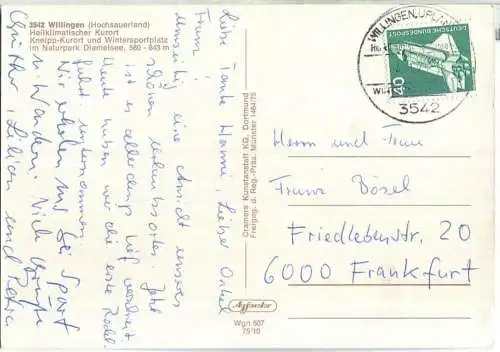 3542 Willingen (Hochsauerland)
Heilklimatischer Kurort
Kneipp-Kurort und Wintersportplatz
im Naturpark Diemelsee, 560 - 843 m
Liebe Tante Hanni, Lieber Onkel
Franz!
Umseitig eine Ansicht unseres
schönen Urlaubsortes. Jetzt
ist es allerdings tief verschneit.
Heute haben wir die erste Rodel-
fahrt unternommen.
Wir erholen uns bei Sport
u. Wandern. Viele Grüße
Günther, Lilian und Petra
Cramers Kunstanstalt KG, Dortmund
Freigeg. d. Reg.-Präs. Münster
Wgn 507
75/10
WILLINGEN, UPLAND
3542
DEUTSCHE BUNDESPOST
40
Herrn und Frau
Franz Bösel
Friedlebenstr. 20
6000 Frankfurt